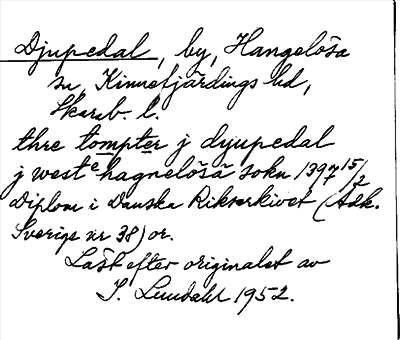 Djupedal, by, Hangelösa
sn, Kinnefjärdings hd,
Skarab. l.
thre tompter j dyupedal
j weste hagnelösä sokn 1397 15/2
Diplom i Danska Riksarkivet (Adk.
Sverige nr 38) or.
Läst efter originalet av
I. Lundahl 1952.